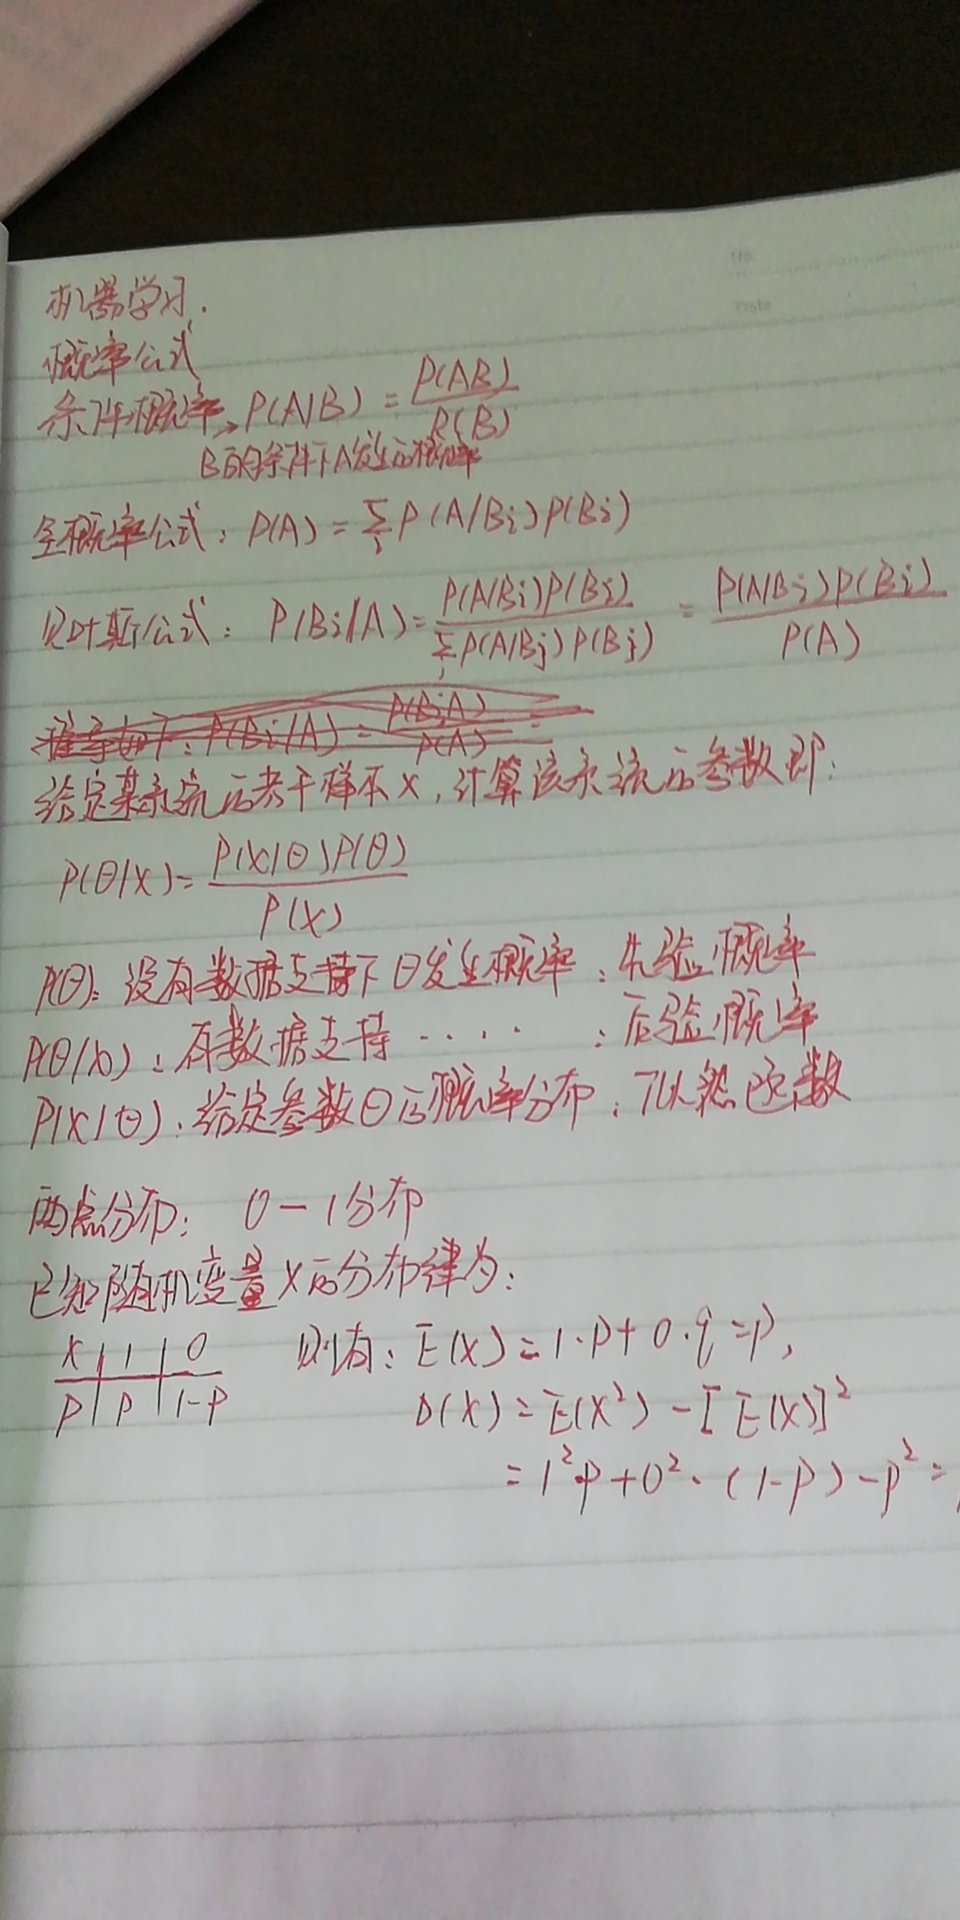 No.
Date
机器学习.
概率公式
条件概率→P(A|B) = P(AB) / P(B)
B的条件下A发生的概率
全概率公式: P(A) = Σi P(A/Bi)P(Bi)
贝叶斯公式: P(Bi/A) = P(A/Bi)P(Bi) / Σj P(A/Bj)P(Bj) = P(A/Bi)P(Bi) / P(A)
推导如下: P(Bi/A) = P(BiA) / P(A) =
给定某系统的若干样本X,计算该系统的参数即:
P(θ/X) = P(X/θ)P(θ) / P(X)
P(θ): 没有数据支持下θ发生概率: 先验概率
P(θ/x): 有数据支持······: 后验概率
P(X/θ): 给定参数θ的概率分布: 似然函数
两点分布: 0-1分布
已知随机变量X的分布律为:
X | 1 | 0 则有: E(X) = 1·P+0·q = P,
P | P | 1-P D(X) = E(X²) - [E(X)]²
= 1²·P+0²·(1-P)-P² =